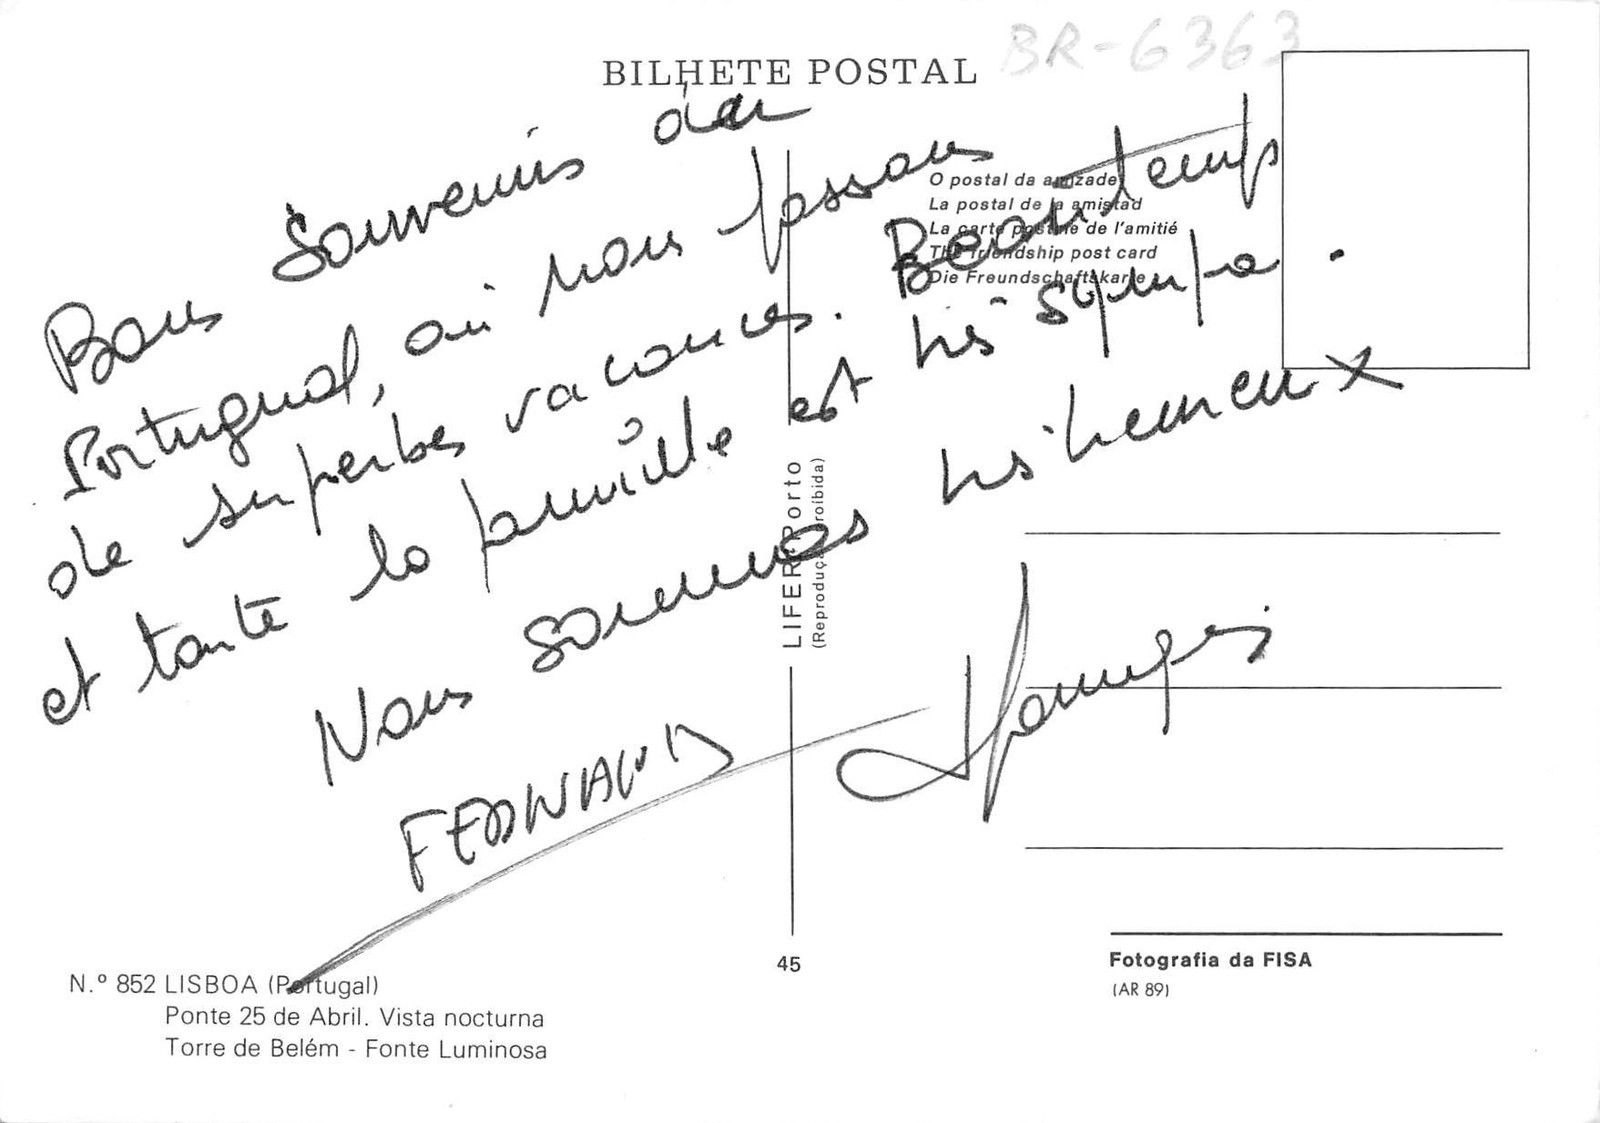 BR-6363
BILHETE POSTAL
Bons Souvenirs du
Portugal, où nous passons
de superbes vacances. Beau temps
et toute la famille est très sympa.
Nous sommes très heureux
FERNAND
O postal da amizade
La postal de la amistad
La carte postale de l'amitié
The friendship post card
Die Freundschaftskarte
LIFER Porto
(Reprodução proibida)
N.º 852 LISBOA (Portugal)
Ponte 25 de Abril. Vista nocturna
Torre de Belém - Fonte Luminosa
45
Fotografia da FISA
(AR 89)